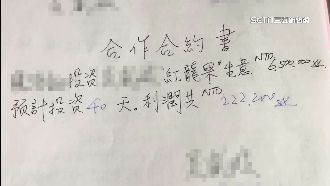 合作合約書
投資 紅龍果生意 NTD 6,500,000元
預計投資40天。利潤共 NTD 222,200元